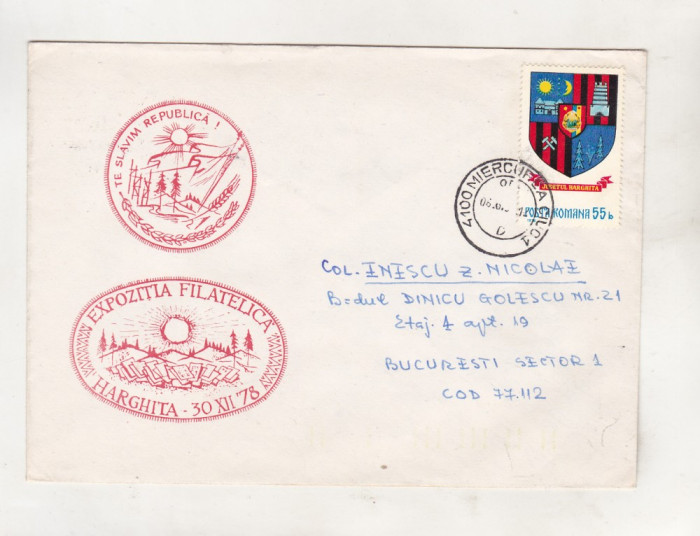 TE SLĂVIM REPUBLICĂ !
EXPOZITIA FILATELICA
HARGHITA - 30 XII '78
JUDETUL HARGHITA
POSTA ROMANA 55 b
4100 MIERCUREA CIUC 1
06.0
D
COL. INESCU Z. NICOLAE
B-dul DINICU GOLESCU NR. 21
Etaj. 4 apt. 19
BUCURESTI SECTOR 1
COD 77.112